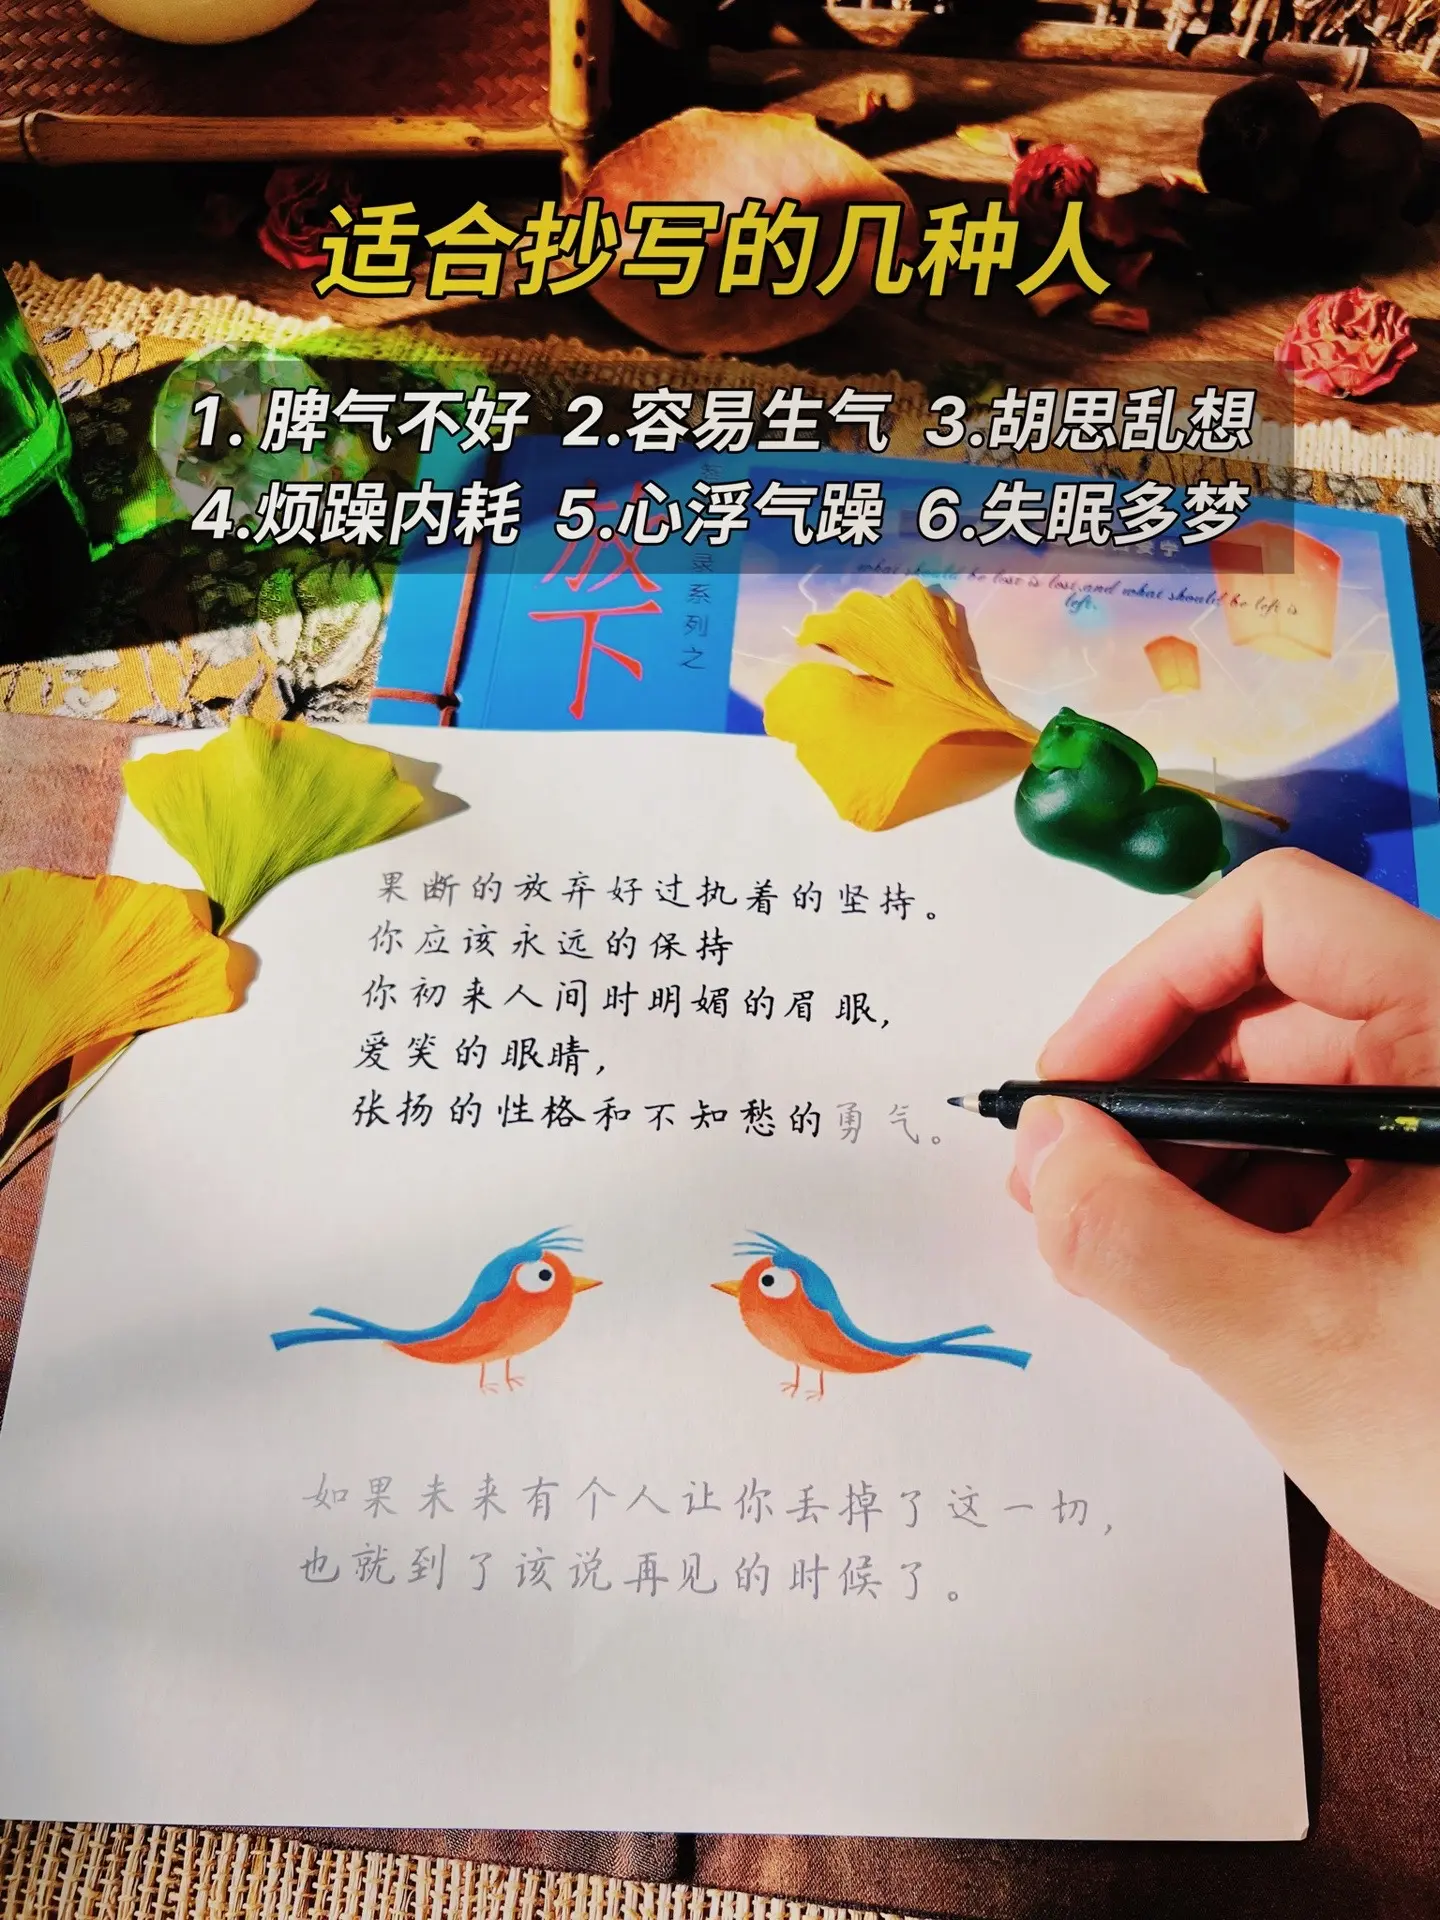 适合抄写的几种人
1. 脾气不好 2.容易生气 3.胡思乱想
4.烦躁内耗 5.心浮气躁 6.失眠多梦
放下
录系列之
what should be lost is lost,and what should be left is
left.
果断的放弃好过执着的坚持。
你应该永远的保持
你初来人间时明媚的眉眼,
爱笑的眼睛,
张扬的性格和不知愁的勇气。
如果未来有个人让你丢掉了这一切,
也就到了该说再见的时候了。